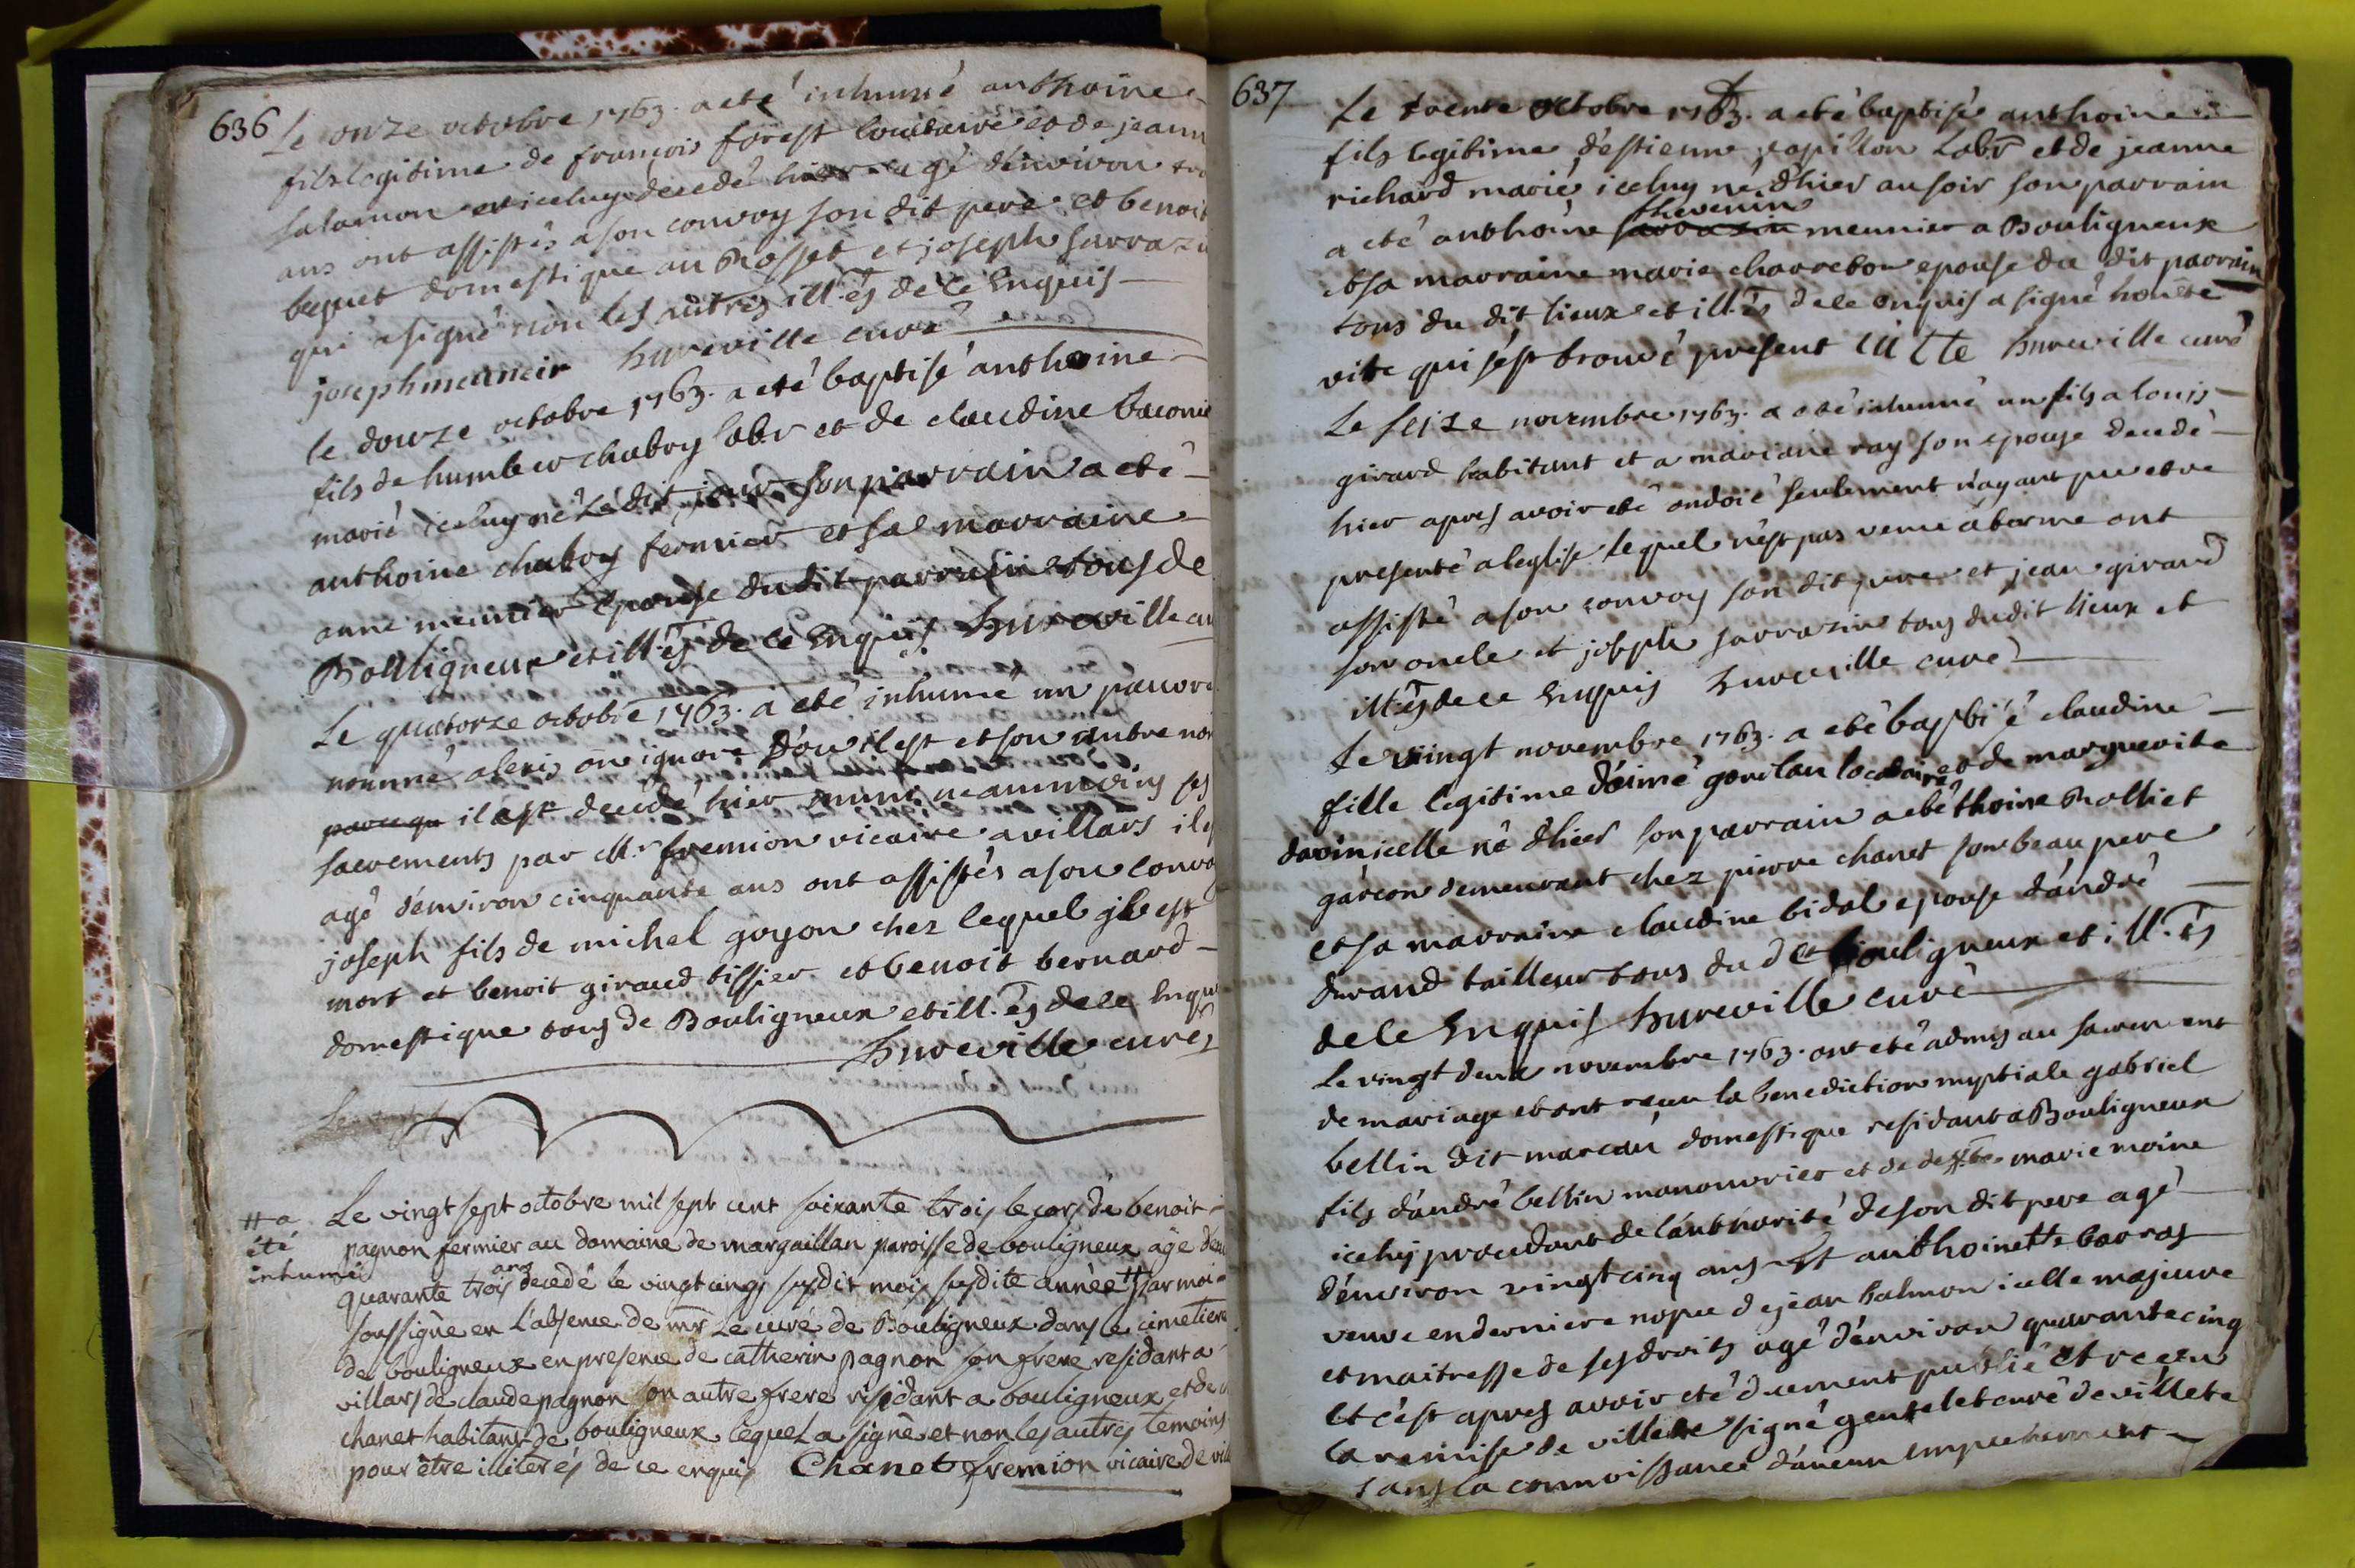 636
Le onze octobre 1763. a eté inhumé anthoine
fils legitime de francois forest locataire et de jeann
salamon et iceluy decedé hier agé d'environ
ans ont assistés a son convoy son dit pere et benoit
bequet domestique au Rosset et joseph sarrazi
qui a signé non les autres ill.és de ce Enquis
joseph meuneir hureville curé
le douze octobre 1763. a eté baptisé anthoine
fils de humber chabry labr et de claudine
marié iceluy né Le dit jour son parrain a eté
anthoine chabry fermier et sa marraine
anne meunier epouse du dit parrain tous de
Bouligneux et ill.és de ce Enquis hureville cu
Le quatorze octobre 1763. a eté inhumé un pauvre
nommé alexis on ignore d'ou il est et son autre nom
parcequ il est decedé hier muni neammoins ses
sacrements par Mr fremion vicaire a villars il
agé d'environ cinquante ans ont assistés a son convo
joseph fils de michel goyon chez lequel il est
mort et benoit giraud tissier et benoit bernard
domestique tous de Bouligneux et ill.és de ce Enqu
hureville curé
Le vingt sept octobre mil sept cent soixante trois le cors de benoit
# a été inhumé
pagnon fermier au domaine de margaillan paroisse de bouligneux agé d'en
quarante trois ans decedé le vingt cinq susdit mois susdite année # par moi
soussigné en L'absence de mr Le curé de Bouligneux dans le cimetiere
de bouligneux en presence de catherin pagnon son frere residant a
villars de claude pagnon son autre frere residant a bouligneux et de
chanet habitant de bouligneux lequel a signé et non les autres temoins
pour être illiterés de ce enquis Chanet fremion vicaire de vill
637
Le trente octobre 1763. a eté baptisé anthoine
fils legitime d'estienne papillon Labr et de jeanne
richard marié iceluy né d'hier au soir son parrain
thevenin
a eté anthoine sarrazin meunier a Bouligneux
et sa marraine marie charreton epouse du dit parrain
tous du dit lieux et ill.és de ce enquis a signé
vitte qui s'est trouvé present vitte hureville curé
Le seize novembre 1763. a eté inhumé un fils a louis
girard habitant et a mariane ray son epouse decedé
hier apres avoir eté ondoié seulement n'ayant pu etre
presenté a leglise lequel n'est pas venu a terme ont
assisté a son convoy son dit pere et jean girard
son oncle et joseph sarrazin tous du dit lieux et
ill.és de ce Enquis hureville curé
Le vingt novembre 1763. a eté baptisé claudine
fille legitime d'eimé goudau locataire et de marguerite
davin icelle né d'hier son parrain a eté thoine Rolliet
garcon demeurant chez pierre chanet son beau pere
et sa marraine claudine bidal epouse d'andré
durand tailleur tous du dt bouligneux et ill.és
de ce Enquis hureville curé
Le vingt deux novembre 1763. ont eté admis au sacrement
de mariage et ont recu la benediction nuptiale gabriel
bellin dit marcau domestique residant a Bouligneux
fils d'andré bellin manouvrier et de deffte marie moine
iceluy procedant de l'authorité de son dit pere agé
d'environ vingt cinq ans et anthoinette barras
veuve en derniere nopce de jean balmon icelle majeure
et maitresse de ses droits agé d'environ quarante cinq
et c'est apres avoir eté duement publié et recu
la remise de villete signé gentelet curé de villete
sans la connoissance d'aucun empechement